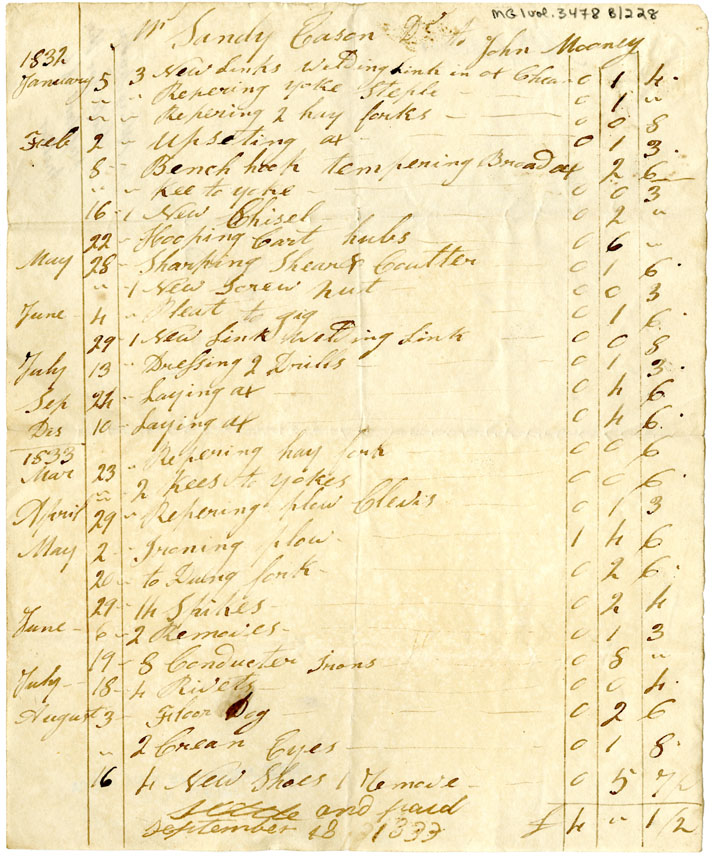 MG1 vol. 3478 B/228
Mr Sandy Cason Dr to John Mooney
1832
January 5 3 New Links Welding Link in ox Chean 0 1 4
" " Repering yoke Steple 0 1 "
" " Repering 2 hay forks 0 0 8
Feb 2 " Upseting ax 0 1 3
8 - Bench hook tempering Broad ax 2 6
" " Kee to yoke 0 0 3
16 - 1 New Chisel 0 2 "
22 " Hooping Cart hubs 0 6 "
May 28 - Sharping Shear & Coulter 0 1 6
" - 1 New Screw nut 0 0 3
June 4 " to gig 0 1 6
29 - 1 New Link Welding Link 0 0 8
July 13 - Dressing 2 Drills 0 1 3
Sep 24 - Laying ax 0 4 6
Des 10 - Laying ax 0 4 6
1833
Mar 23 " Repering hay fork 0 0 6
" - 2 Kees to yokes 0 0 6
April 29 " Repering plow Clevis 0 1 3
May 2 - Ironing plow 1 4 6
20 - to Dung fork 0 2 6
29 - 14 Spikes 0 2 4
June 6 - 2 Removes 0 1 3
19 - 8 Conducter Irons 0 8 "
July 18 - 4 Rivets 0 0 4
August 3 - Floor Dog 0 2 6
" 2 Crean Eyes 0 1 8
16 4 New Shoes 1 Remove 0 5 7½
and paid
September 18 1833 £ 4 " 1/2